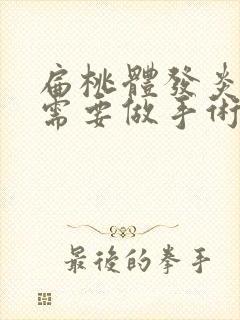 扁桃體發炎
需要做手術
最後的拳手